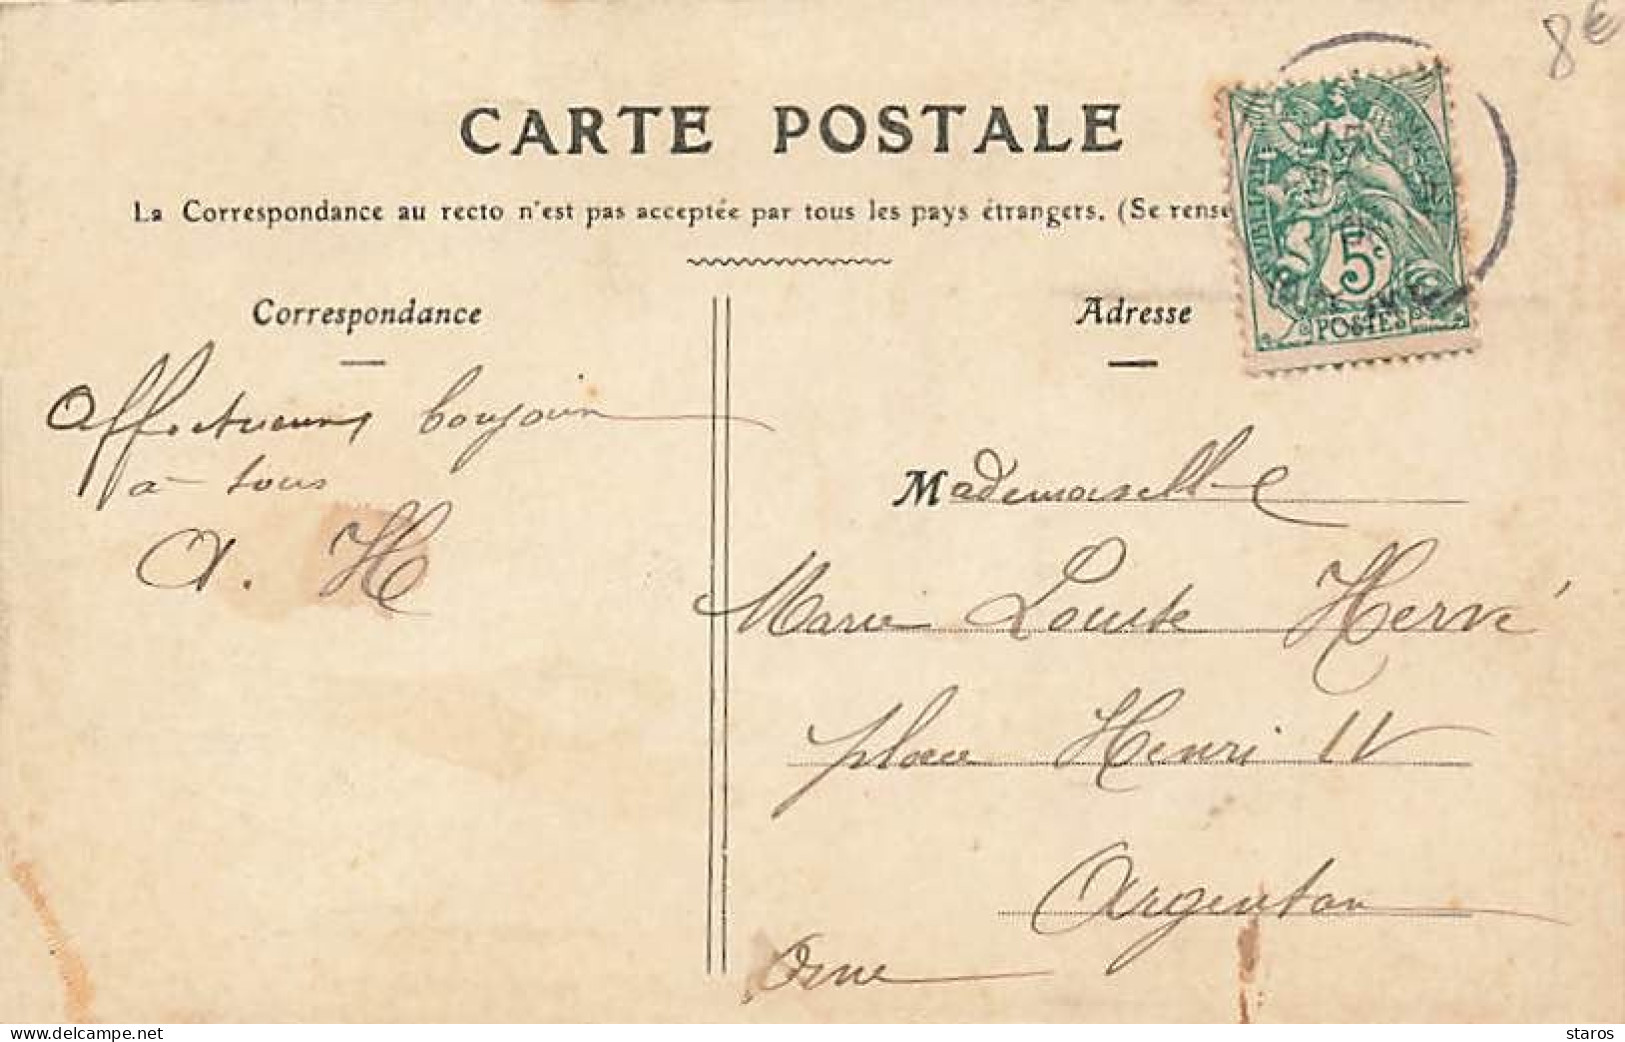 8€
CARTE POSTALE
La Correspondance au recto n'est pas acceptée par tous les pays étrangers. (Se rense
5c
POSTES
Correspondance
Adresse
Affectueux bonjour
à tous
A. H
Mademoiselle
Marie Louise Hervé
place Henri IV
Argentan
Orne
www.delcampe.net
staros